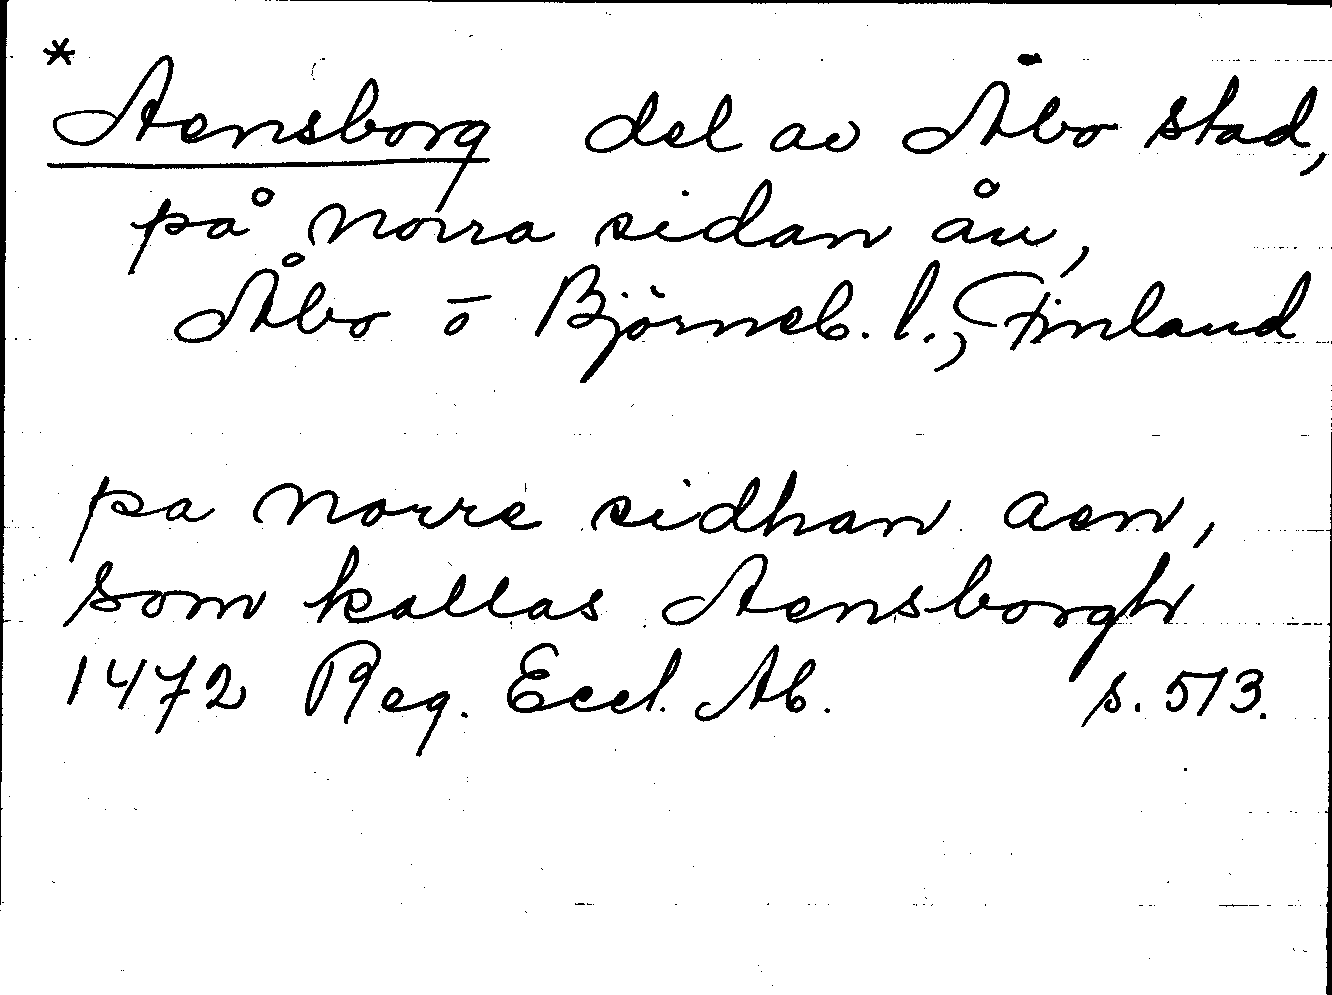 * Aensborg del av Åbo stad,
på norra sidan ån,
Åbo o Björneb. l., Finland
pa norre sidhan aen,
som kallas Aensborgh
1472 Reg. Eccl. Ab. s. 513.